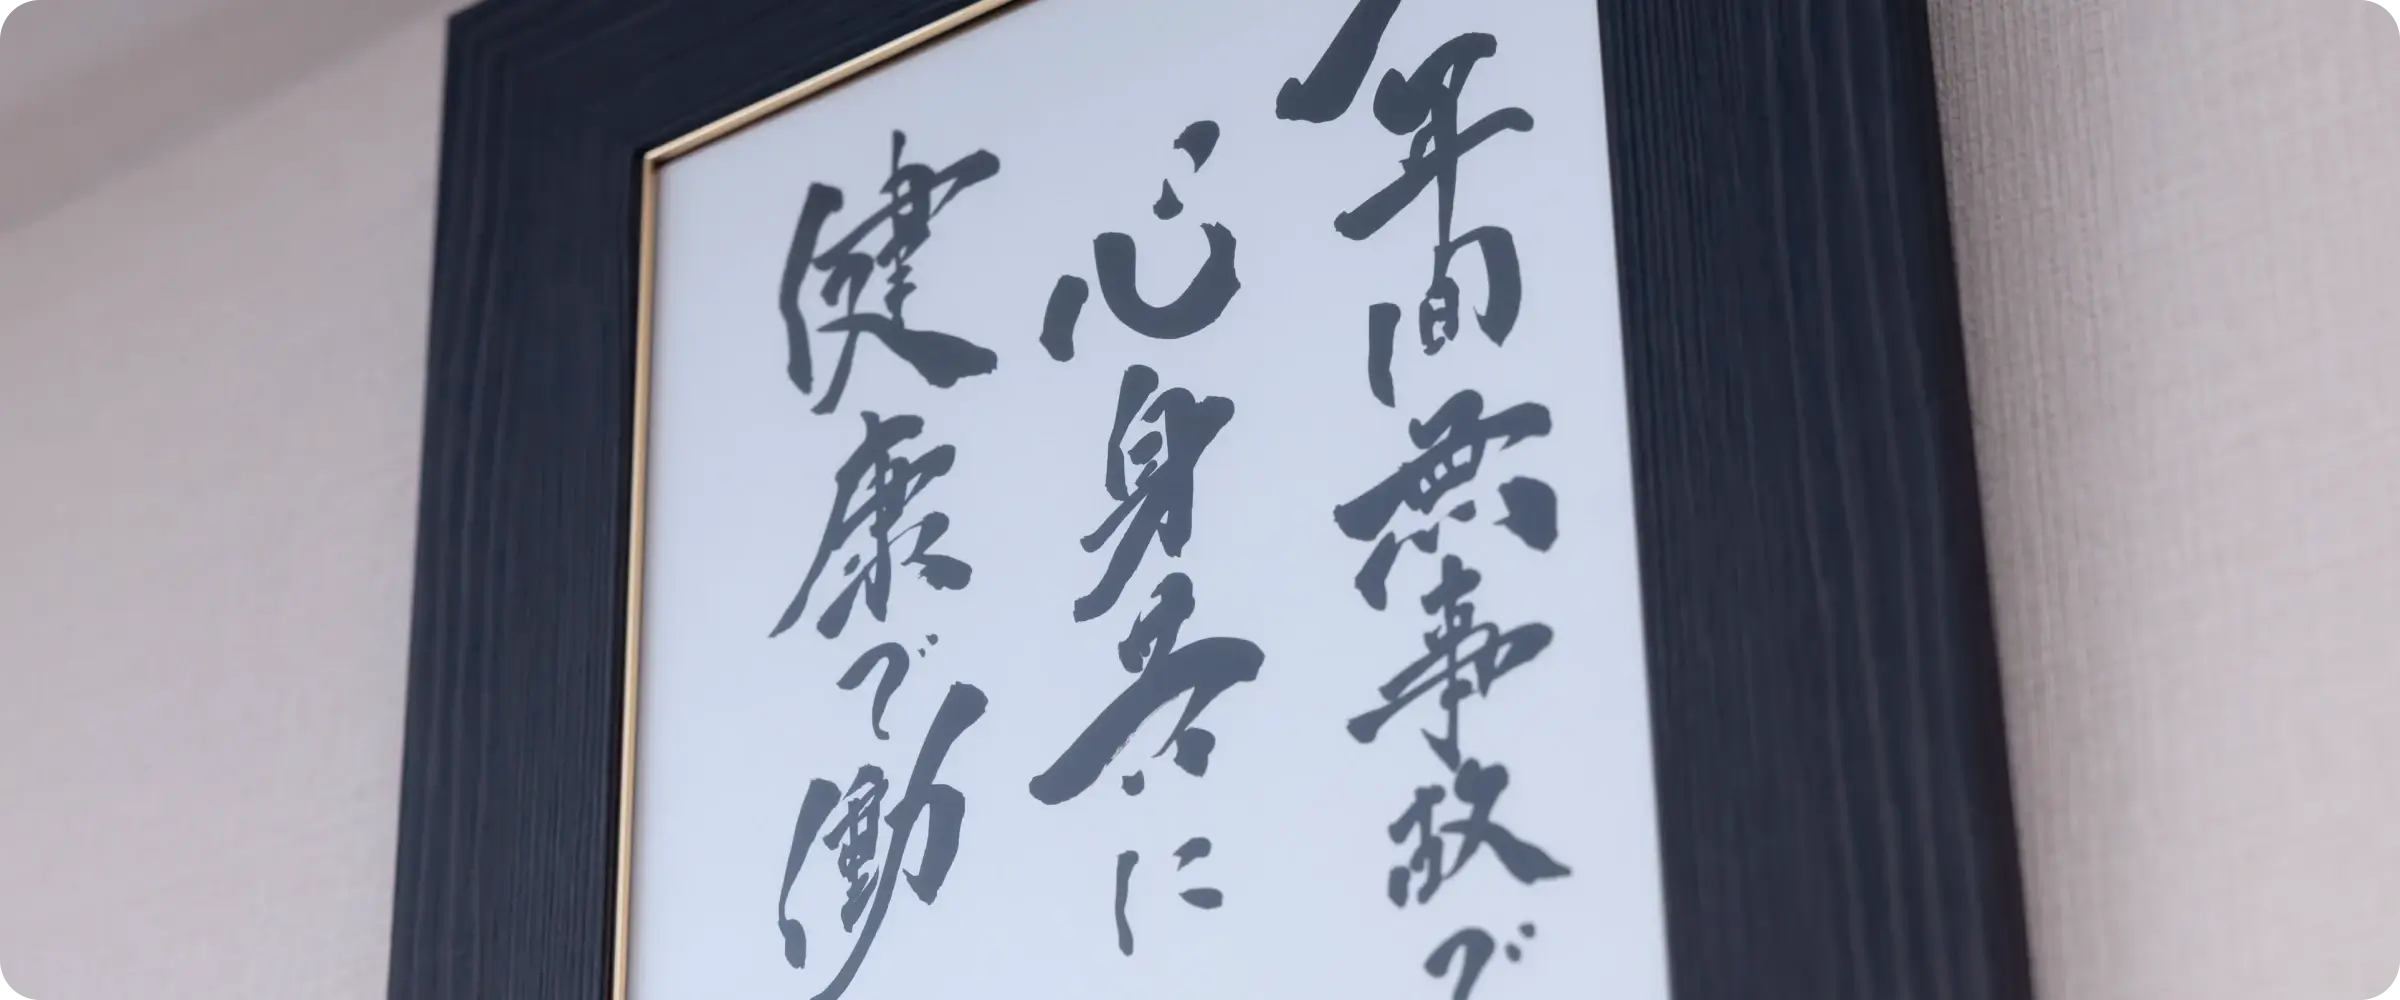 年間無事故で
心身共に
健康で働